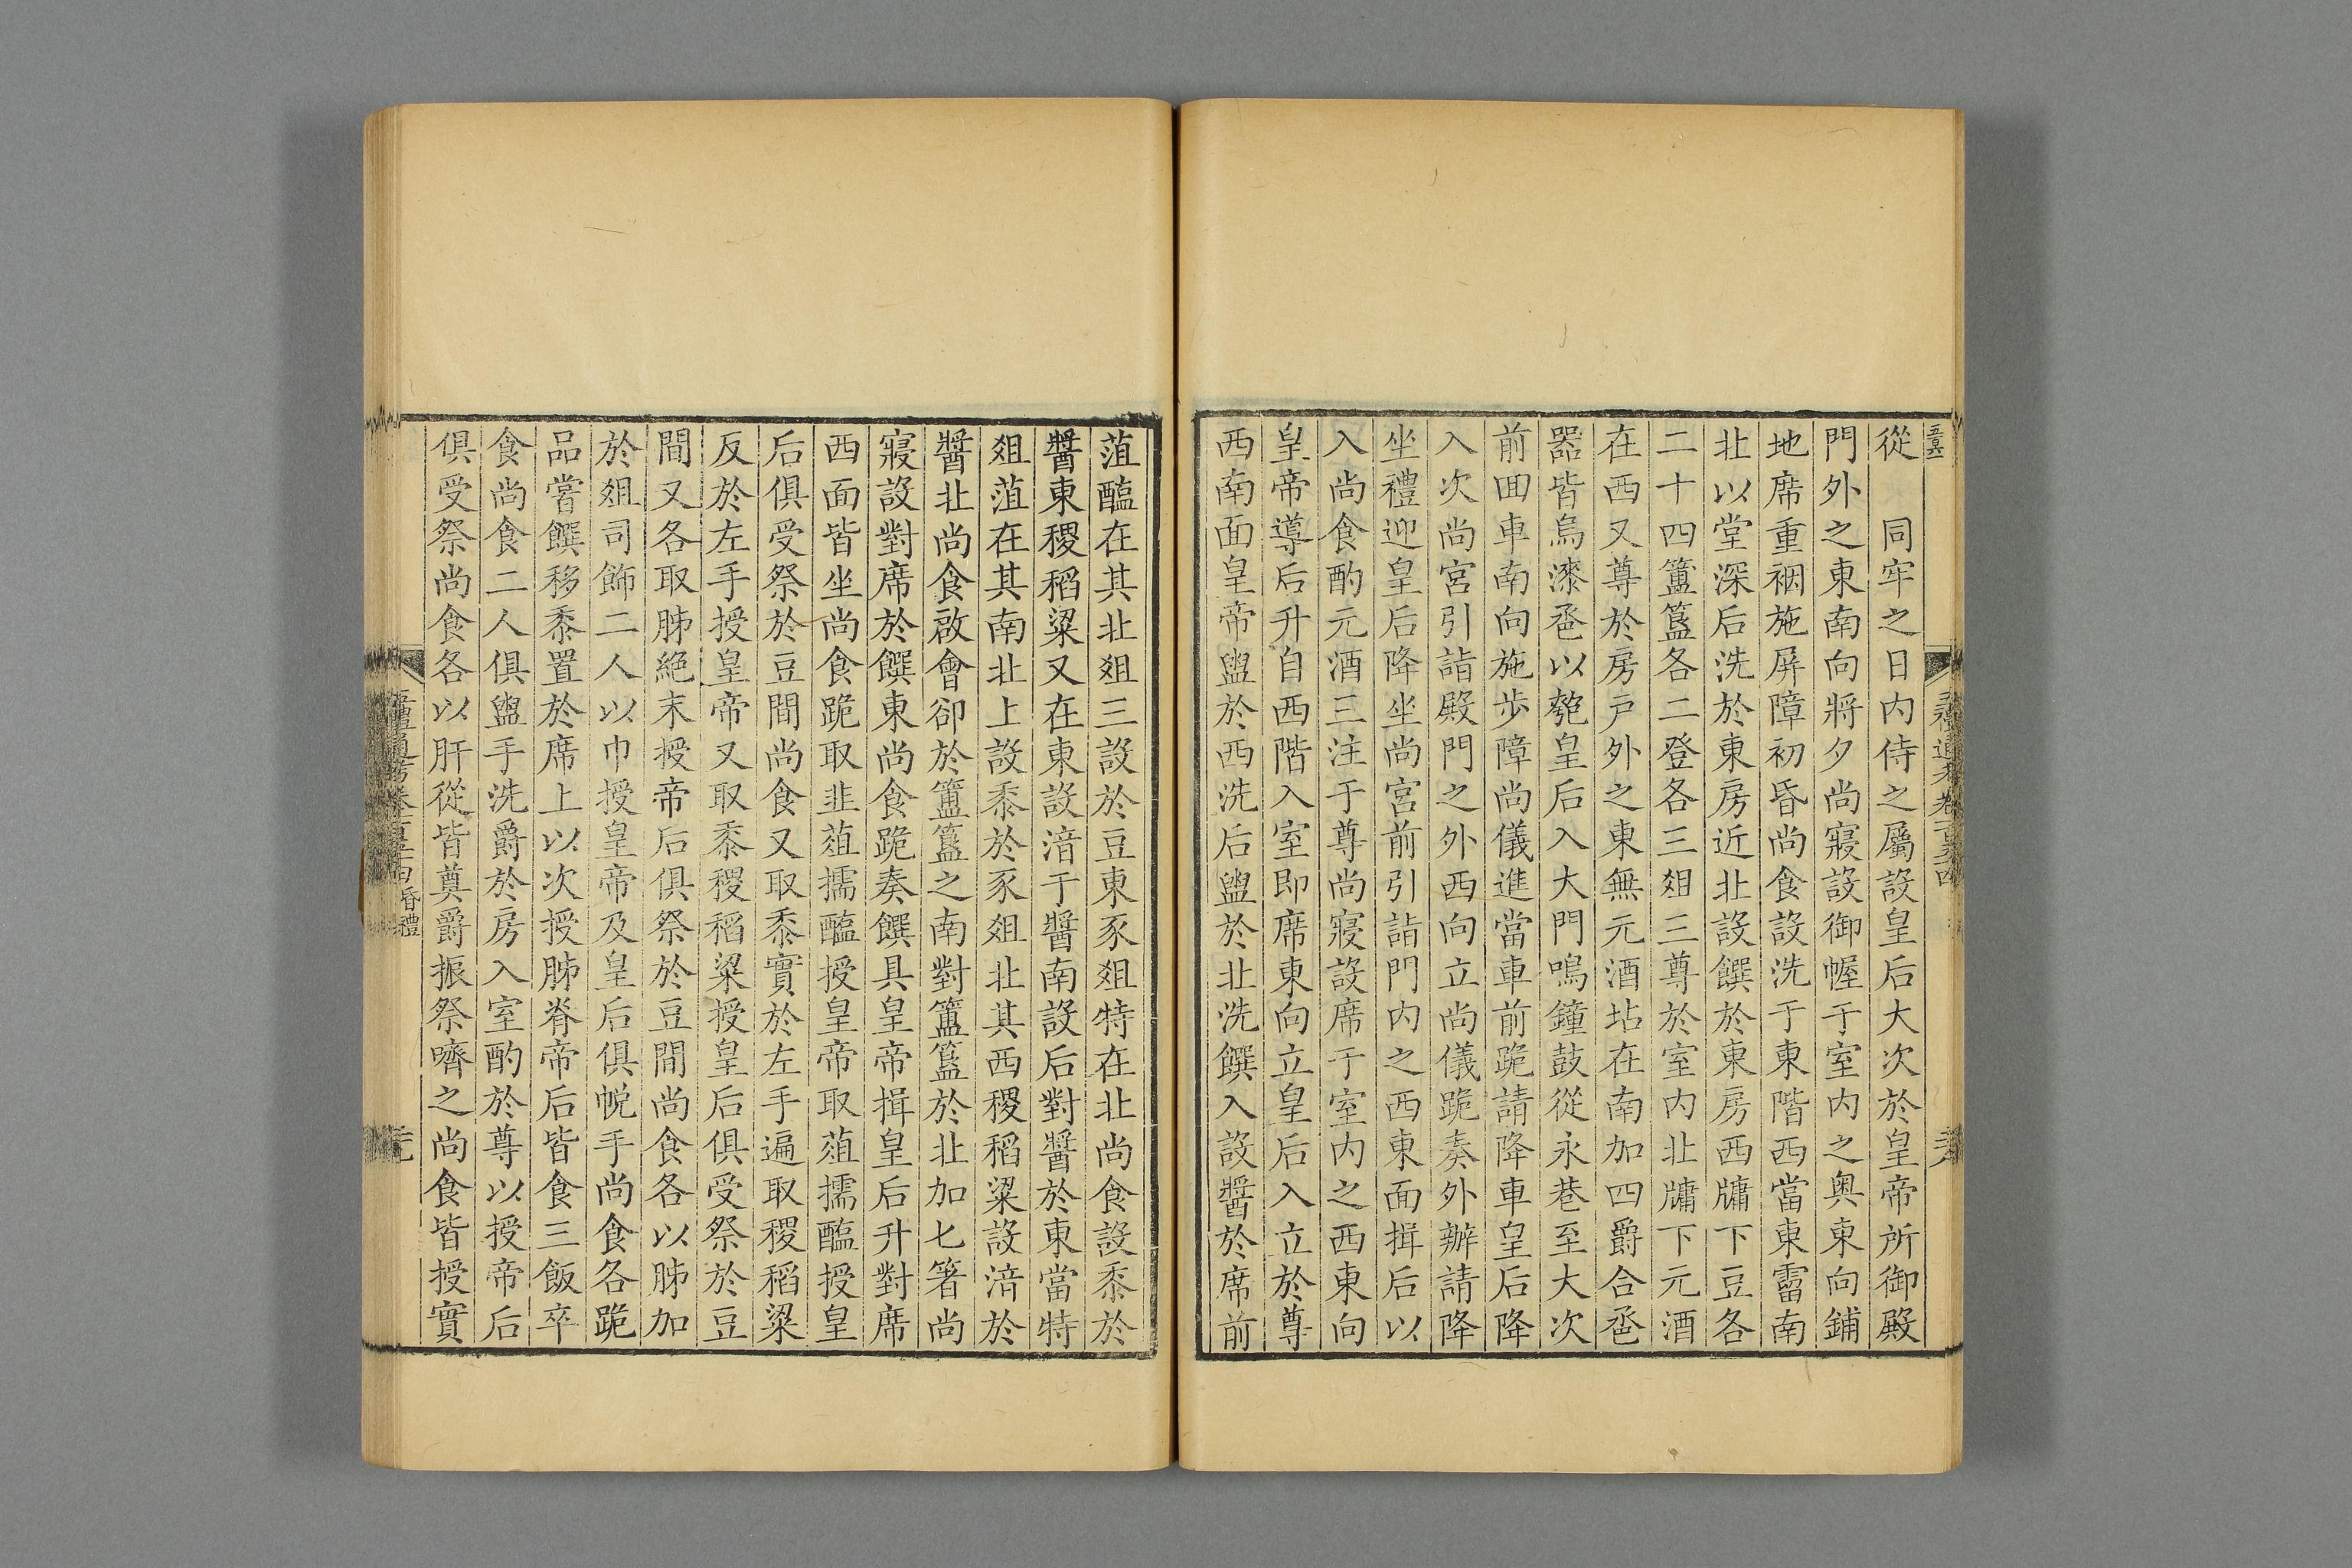 從　同牢之日内侍之屬設皇后大次於皇帝所御殿
門外之東南向將夕尚寢設御幄于室内之奥東向鋪
地席重裀施屏障初昏尚食設洗于東階西當東霤南
北以堂深后洗於東房近北設饌於東房西牖下豆各
二十四簠簋各二登各三俎三尊於室内北牖下元酒
在西又尊於房戸外之東無元酒坫在南加四爵合巹
器皆烏漆巹以匏皇后入大門鳴鐘鼓從永巷至大次
前囬車南向施步障尚儀進當車前跪請降車皇后降
入次尚宮引詣殿門之外西向立尚儀跪奏外辦請降
坐禮迎皇后降坐尚宮前引詣門内之西東面揖后以
入尚食酌元酒三注于尊尚寢設席于室内之西東向
皇帝導后升自西階入室即席東向立皇后入立於尊
西南面皇帝盥於西洗后盥於北洗饌入設醬於席前
菹醢在其北俎三設於豆東豕俎特在北尚食設黍於
醬東稷稻粱又在東設湆于醬南設后對醬於東當特
俎菹在其南北上設黍於豕俎北其西稷稻粱設湆於
醬北尚食啟會卻於簠簋之南對簠簋於北加匕箸尚
寢設對席於饌東尚食跪奏饌具皇帝揖皇后升對席
西面皆坐尚食跪取韭菹擩醢授皇帝取菹擩醢授皇
后俱受祭於豆間尚食又取黍實於左手遍取稷稻粱
反於左手授皇帝又取黍稷稻粱授皇后俱受祭於豆
間又各取胏絕末授帝后俱祭於豆間尚食各以胏加
於俎司飾二人以巾授皇帝及皇后俱帨手尚食各跪
品嘗饌移黍置於席上以次授胏脊帝后皆食三飯卒
食尚食二人俱盥手洗爵於房入室酌於尊以授帝后
俱受祭尚食各以肝從皆奠爵振祭嚌之尚食皆授實
昏禮